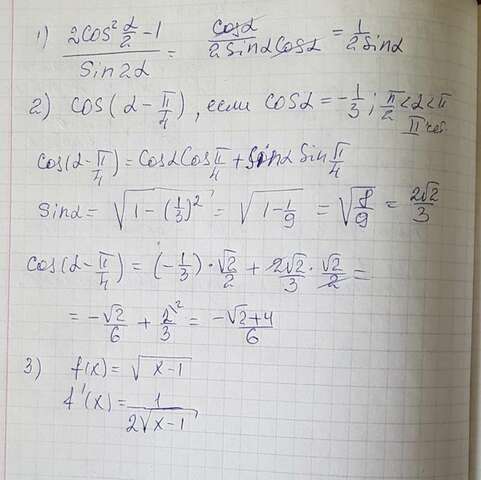 1) (2cos² α/2 - 1) / sin2α = cosα / (2sinαcosα) = 1 / (2sinα)
2) cos(α - π/4), если cosα = -1/3; π/2 < α < π
II чет.
cos(α - π/4) = cosα cos π/4 + sinα sin π/4
sinα = √(1 - (1/3)²) = √(1 - 1/9) = √(8/9) = 2√2/3
cos(α - π/4) = (-1/3) · √2/2 + 2√2/3 · √2/2 =
= -√2/6 + 2/3 \2 = (-√2+4)/6
3) f(x) = √(x-1)
f'(x) = 1 / (2√(x-1))